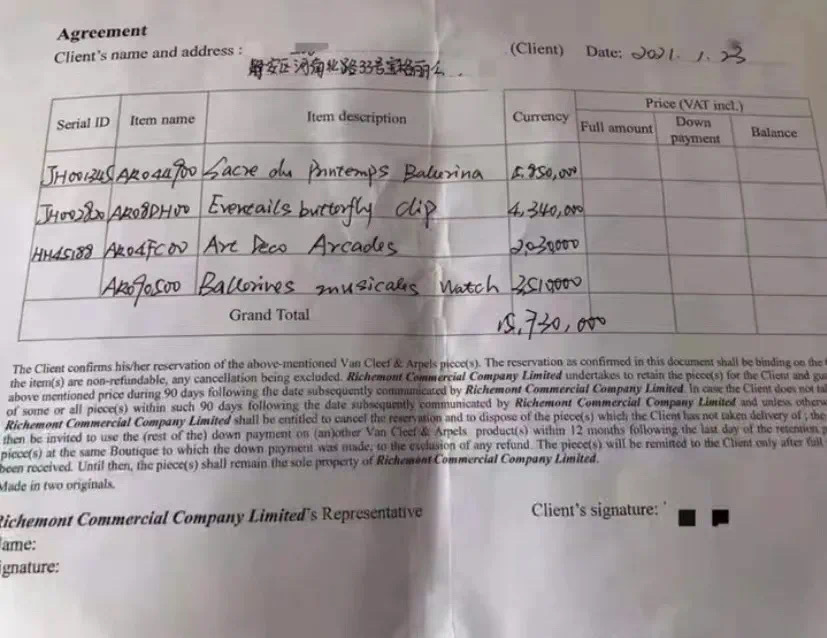 Agreement
Client's name and address :
(Client) Date: 2021. 1. 23
静安区河南北路33号宝格丽公
Serial ID Item name Item description Currency Price (VAT incl.)
Full amount Down payment Balance
JH001345 AR044900 Sacre du Printemps Ballerina 5,850,000
JH002820 AR08DH00 Eventails butterfly clip 4,340,000
HH45188 AR04FC00 Art Deco Arcades 2,030,000
AR090500 Ballerines musicales watch 3,510,000
Grand Total 15,730,000
The Client confirms his/her reservation of the above-mentioned Van Cleef & Arpels piece(s). The reservation as confirmed in this document shall be binding on the
the item(s) are non-refundable, any cancellation being excluded. Richemont Commercial Company Limited undertakes to retain the piece(s) for the Client and
above mentioned price during 90 days following the date subsequently communicated by Richemont Commercial Company Limited. In case the Client does not
of some or all piece(s) within such 90 days following the date subsequently communicated by Richemont Commercial Company Limited and unless
Richemont Commercial Company Limited shall be entitled to cancel the reservation and to dispose of the piece(s) which the Client has not taken delivery of ; the
then be invited to use the (rest of the) down payment on (an)other Van Cleef & Arpels product(s) within 12 months following the last day of the retention
piece(s) at the same Boutique to which the down payment was made, to the exclusion of any refund. The piece(s) will be remitted to the Client only after full
been received. Until then, the piece(s) shall remain the sole property of Richemont Commercial Company Limited.
Made in two originals.
Richemont Commercial Company Limited's Representative
Client's signature:
ame:
ignature: